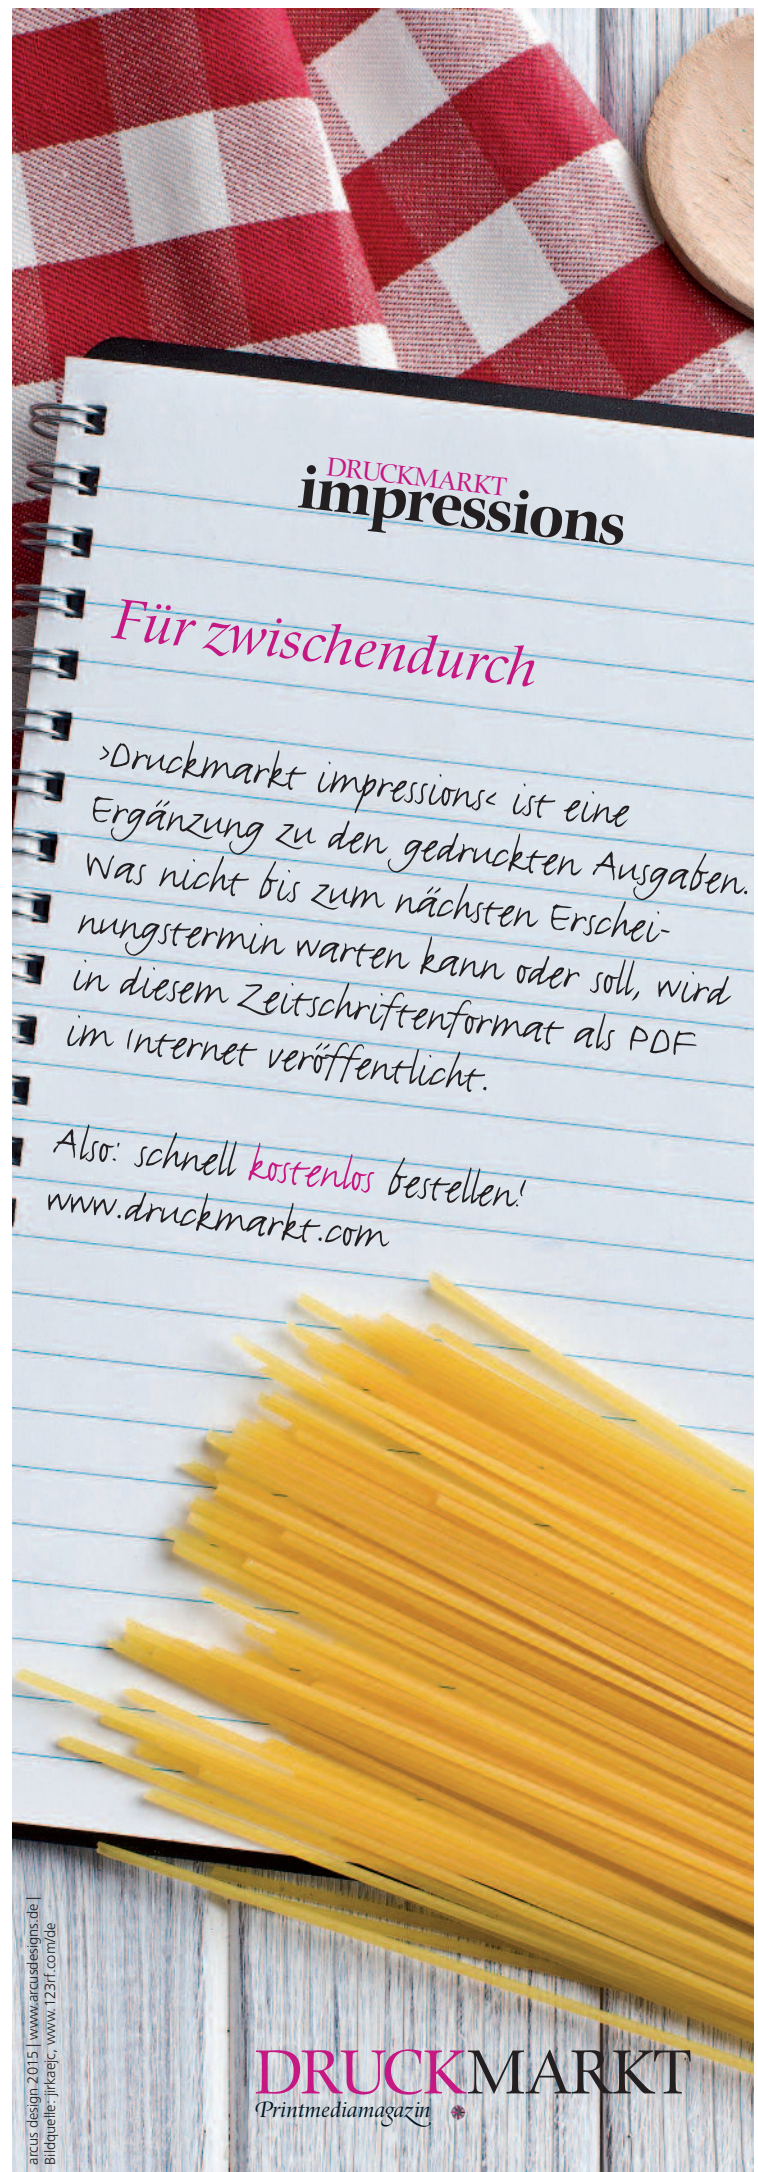 DRUCKMARKT
impressions
Für zwischendurch
>Druckmarkt impressions< ist eine
Ergänzung zu den gedruckten Ausgaben.
Was nicht bis zum nächsten Erschei-
nungstermin warten kann oder soll, wird
in diesem Zeitschriftenformat als PDF
im Internet veröffentlicht.
Also: schnell kostenlos bestellen!
www.druckmarkt.com
arcus design 2015 | www.arcusdesigns.de |
Bildquelle: jirkaejc, www.123rf.com/de
DRUCKMARKT
Printmediamagazin